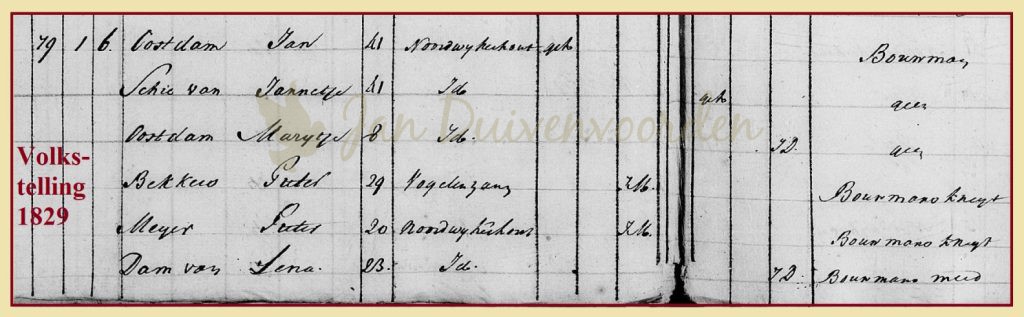 79 1 6. Oostdam Jan 41 Noordwykerhout geh Bouwman
Schie van Jannetje 41 Id. geh geen
Oostdam Marytje 8 Id. J.D. geen
Bekkers Pieter 29 Vogelenzang J.M. Bouwmans kneyt
Meyer Pieter 20 Noordwykerhout J.M. Bouwmans kneyt
Dam van Lena. 23. Id. J.D. Bouwmans meid
Volks-
telling
1829
Jan Duivenvoorden